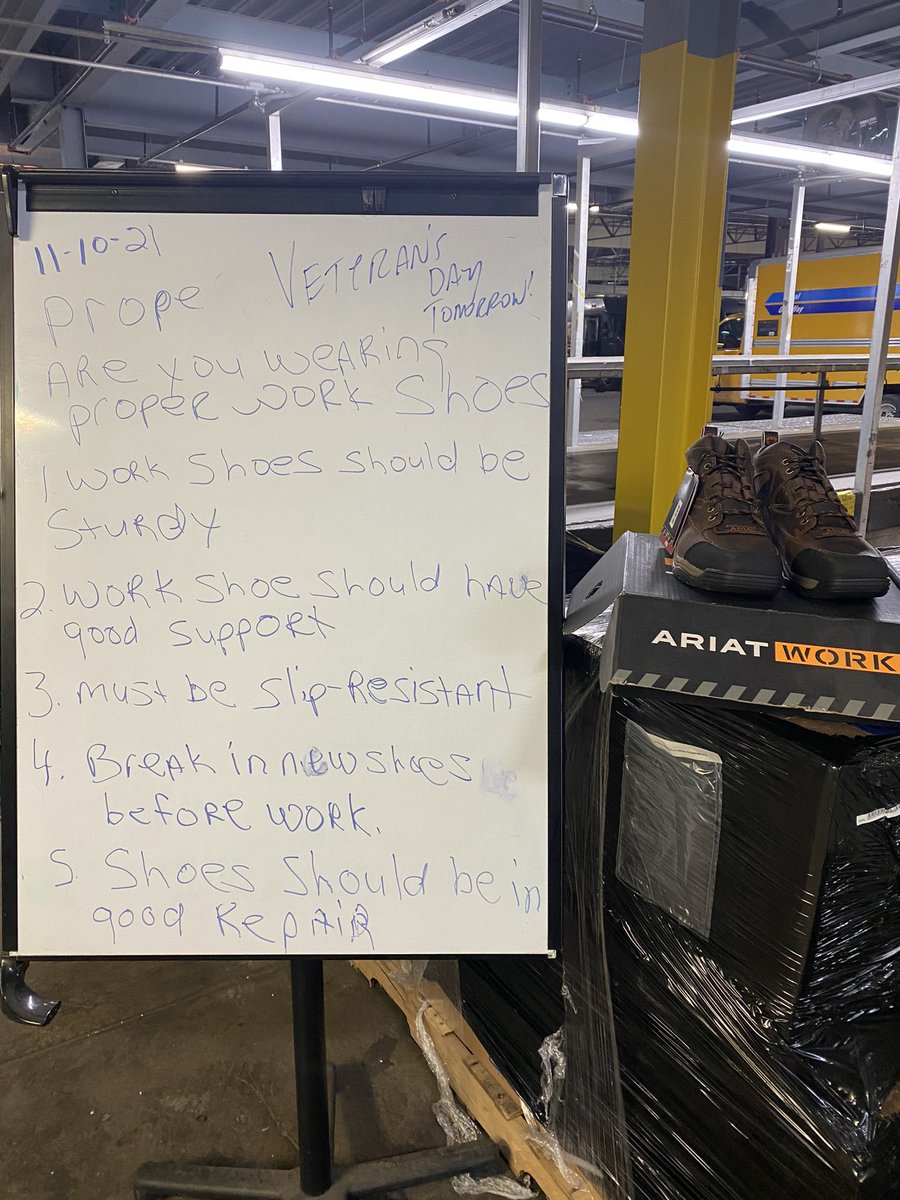 11-10-21
VETERAN'S
DAY
TOMORROW!
Prope
ARE YOU WEARING
proper WORK Shoes
1. Work Shoes Should be
Sturdy
2. Work Shoe Should have
good Support
3. Must be Slip-Resistant
4. Break in new shoes
before work.
5. Shoes Should be in
good Repair
ARIAT WORK